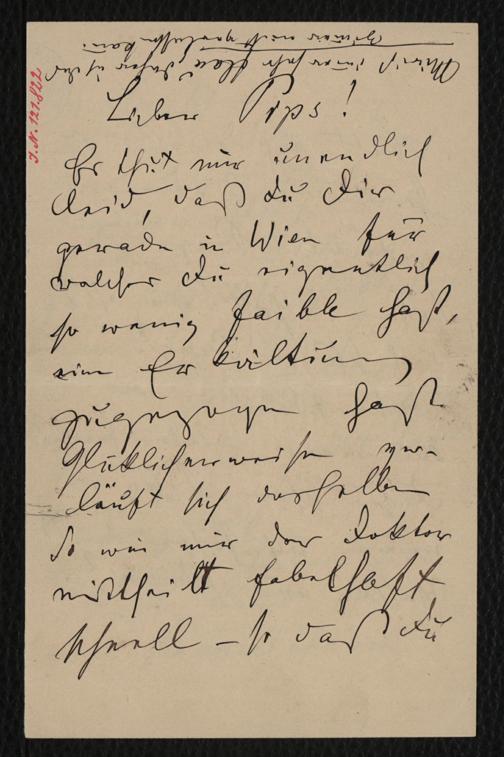 Lieber Pips!
Es thut mir unendlich
leid, daß du Dir
gerade in Wien für
welches du eigentlich
so wenig faible hast,
eine Erkältung
zugezogen hast
Glücklicherweise ver-
läuft sich dieselbe
so wie mir der Doktor
mittheilt fabelhaft
schnell – so daß du
J.N. 121.822